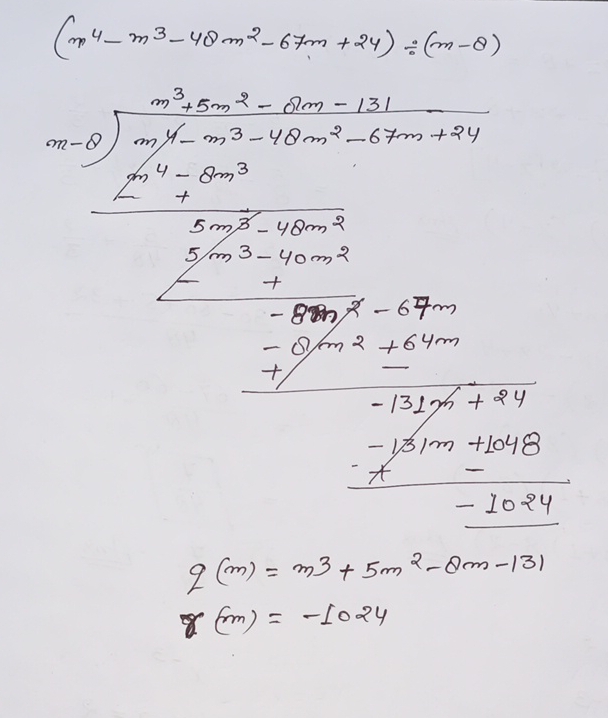 (m4 - m3 - 48m2 - 67m + 24) ÷ (m - 8)
m3 + 5m2 - 8m - 131
m - 8 ) m4 - m3 - 48m2 - 67m + 24
m4 - 8m3
- +
5m3 - 48m2
5m3 - 40m2
- +
- 8m2 - 67m
- 8m2 + 64m
+ -
- 131m + 24
- 131m + 1048
+ -
- 1024
q (m) = m3 + 5m2 - 8m - 131
r (m) = - 1024